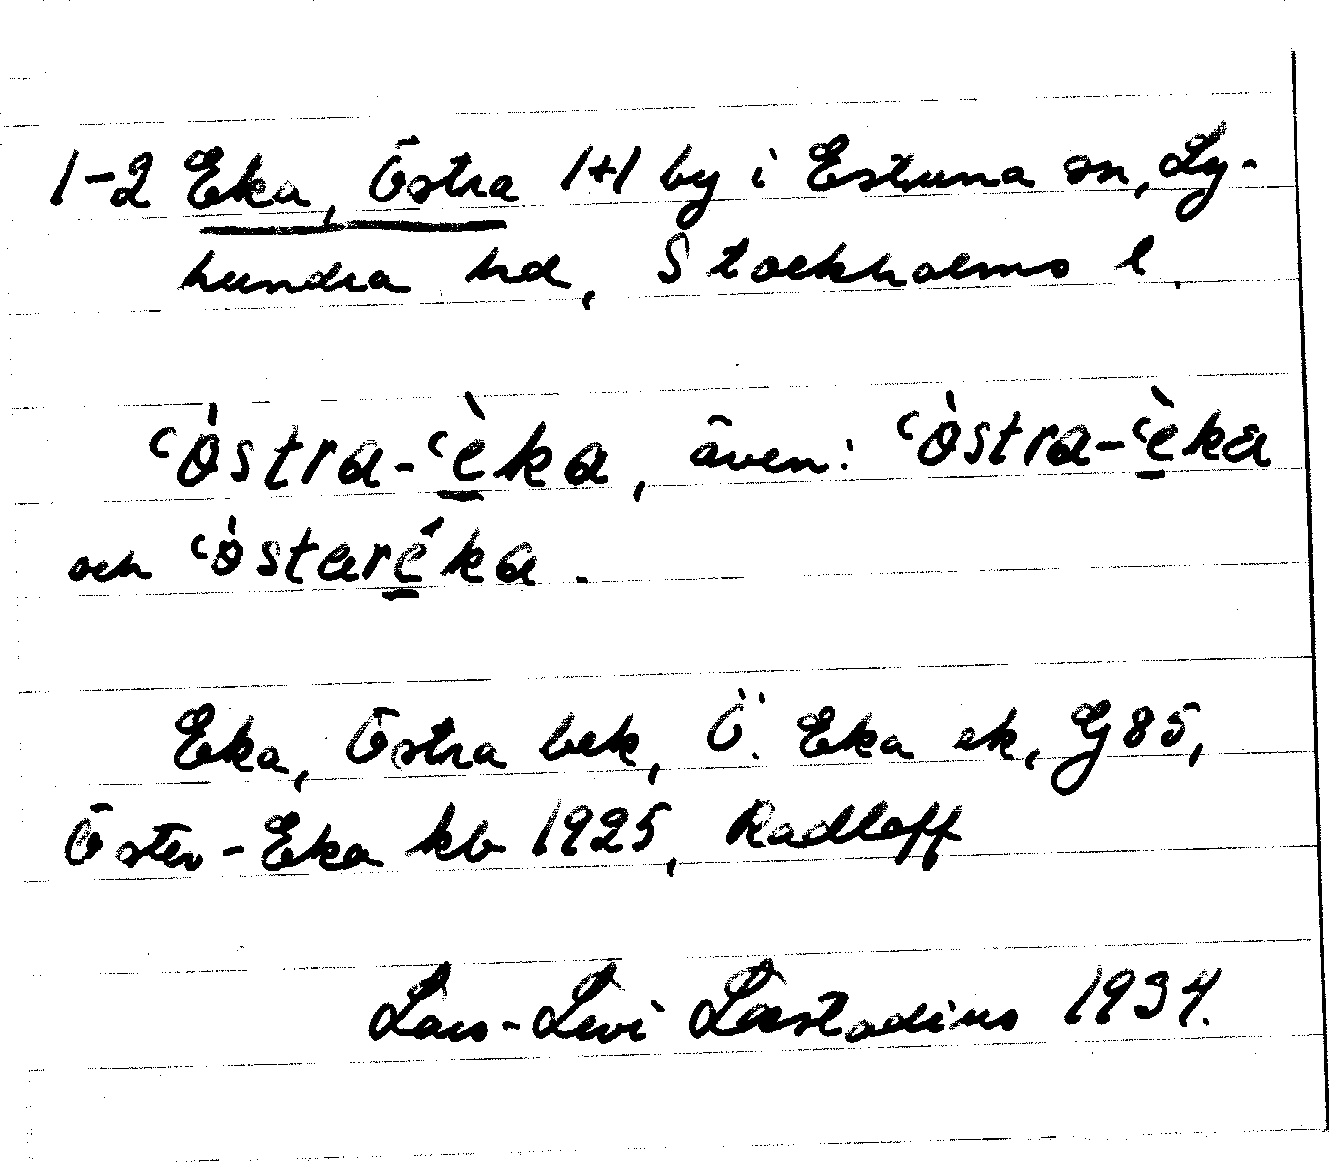 1-2 Eka, Östra 1+1 by i Estuna sn, Ly-
hundra hd, Stockholms l.
‘ò̀stra-‘è̱ka, även: ‘ò̀stra-‘è̱ka
och ‘ò̀staré̱ka.
Eka, Östra bek, Ö. Eka ek, G85,
Öster-Eka kb 1925, Radloff
Lars-Levi Læstadius 1934.